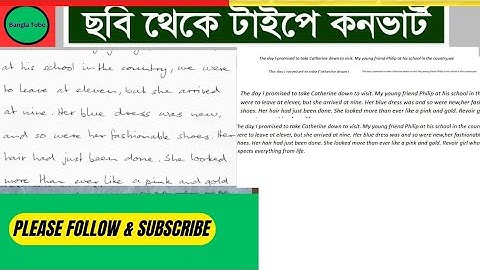 Bangla Tube
ছবি থেকে টাইপে কনভার্ট
at his school in the country, we were
to leave at eleven, but she arrived
at nine. Her blue dress was new,
and so were her fashionable shoes. Her
hair had just been done. She looked
more than ever like a pink and gold
PLEASE FOLLOW & SUBSCRIBE
The day I promised to take Catherine down to visit. My young friend Philip at his school in the country,we
The day I promised to take Catherine down t
The day I promised to take Catherine down to visit. My young friend Philip at his school in the country,we
The day I promised to take Catherine down to visit. My young friend Philip at his school in the coun
were to leave at elever, but she arrived at nine. Her blue dress was and so were new,her fashionab
shoes. Her hair had just been done. She looked more than ever like a pink and gold. Revoir girl w
he day I promised to take Catherine down to visit. My young friend Philip at his school in the country
ere to leave at elever, but she arrived at nine. Her blue dress was and so were new,her fashionable
hoes. Her hair had just been done. She looked more than ever like a pink and gold. Revoir girl who
xpects everything from life.